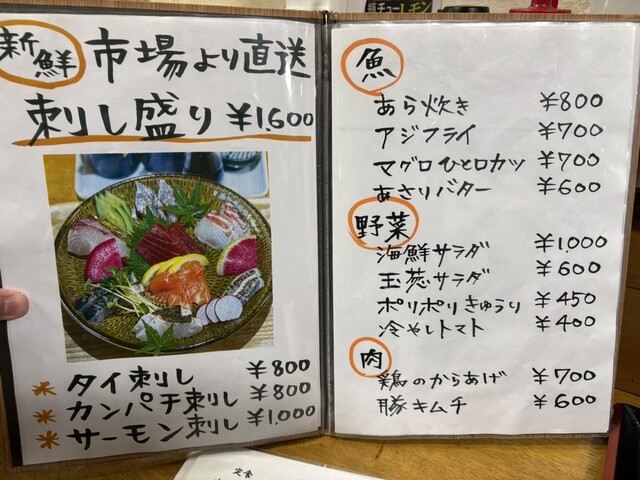 新鮮 市場より直送
刺し盛り ¥1,600
* タイ刺し ¥800
* カンパチ刺し ¥800
* サーモン刺し ¥1,000
魚
あら炊き ¥800
アジフライ ¥700
マグロひと口カツ ¥700
あさりバター ¥600
野菜
海鮮サラダ ¥1,000
玉葱サラダ ¥600
ポリポリきゅうり ¥450
冷やしトマト ¥400
肉
鶏のからあげ ¥700
豚キムチ ¥600